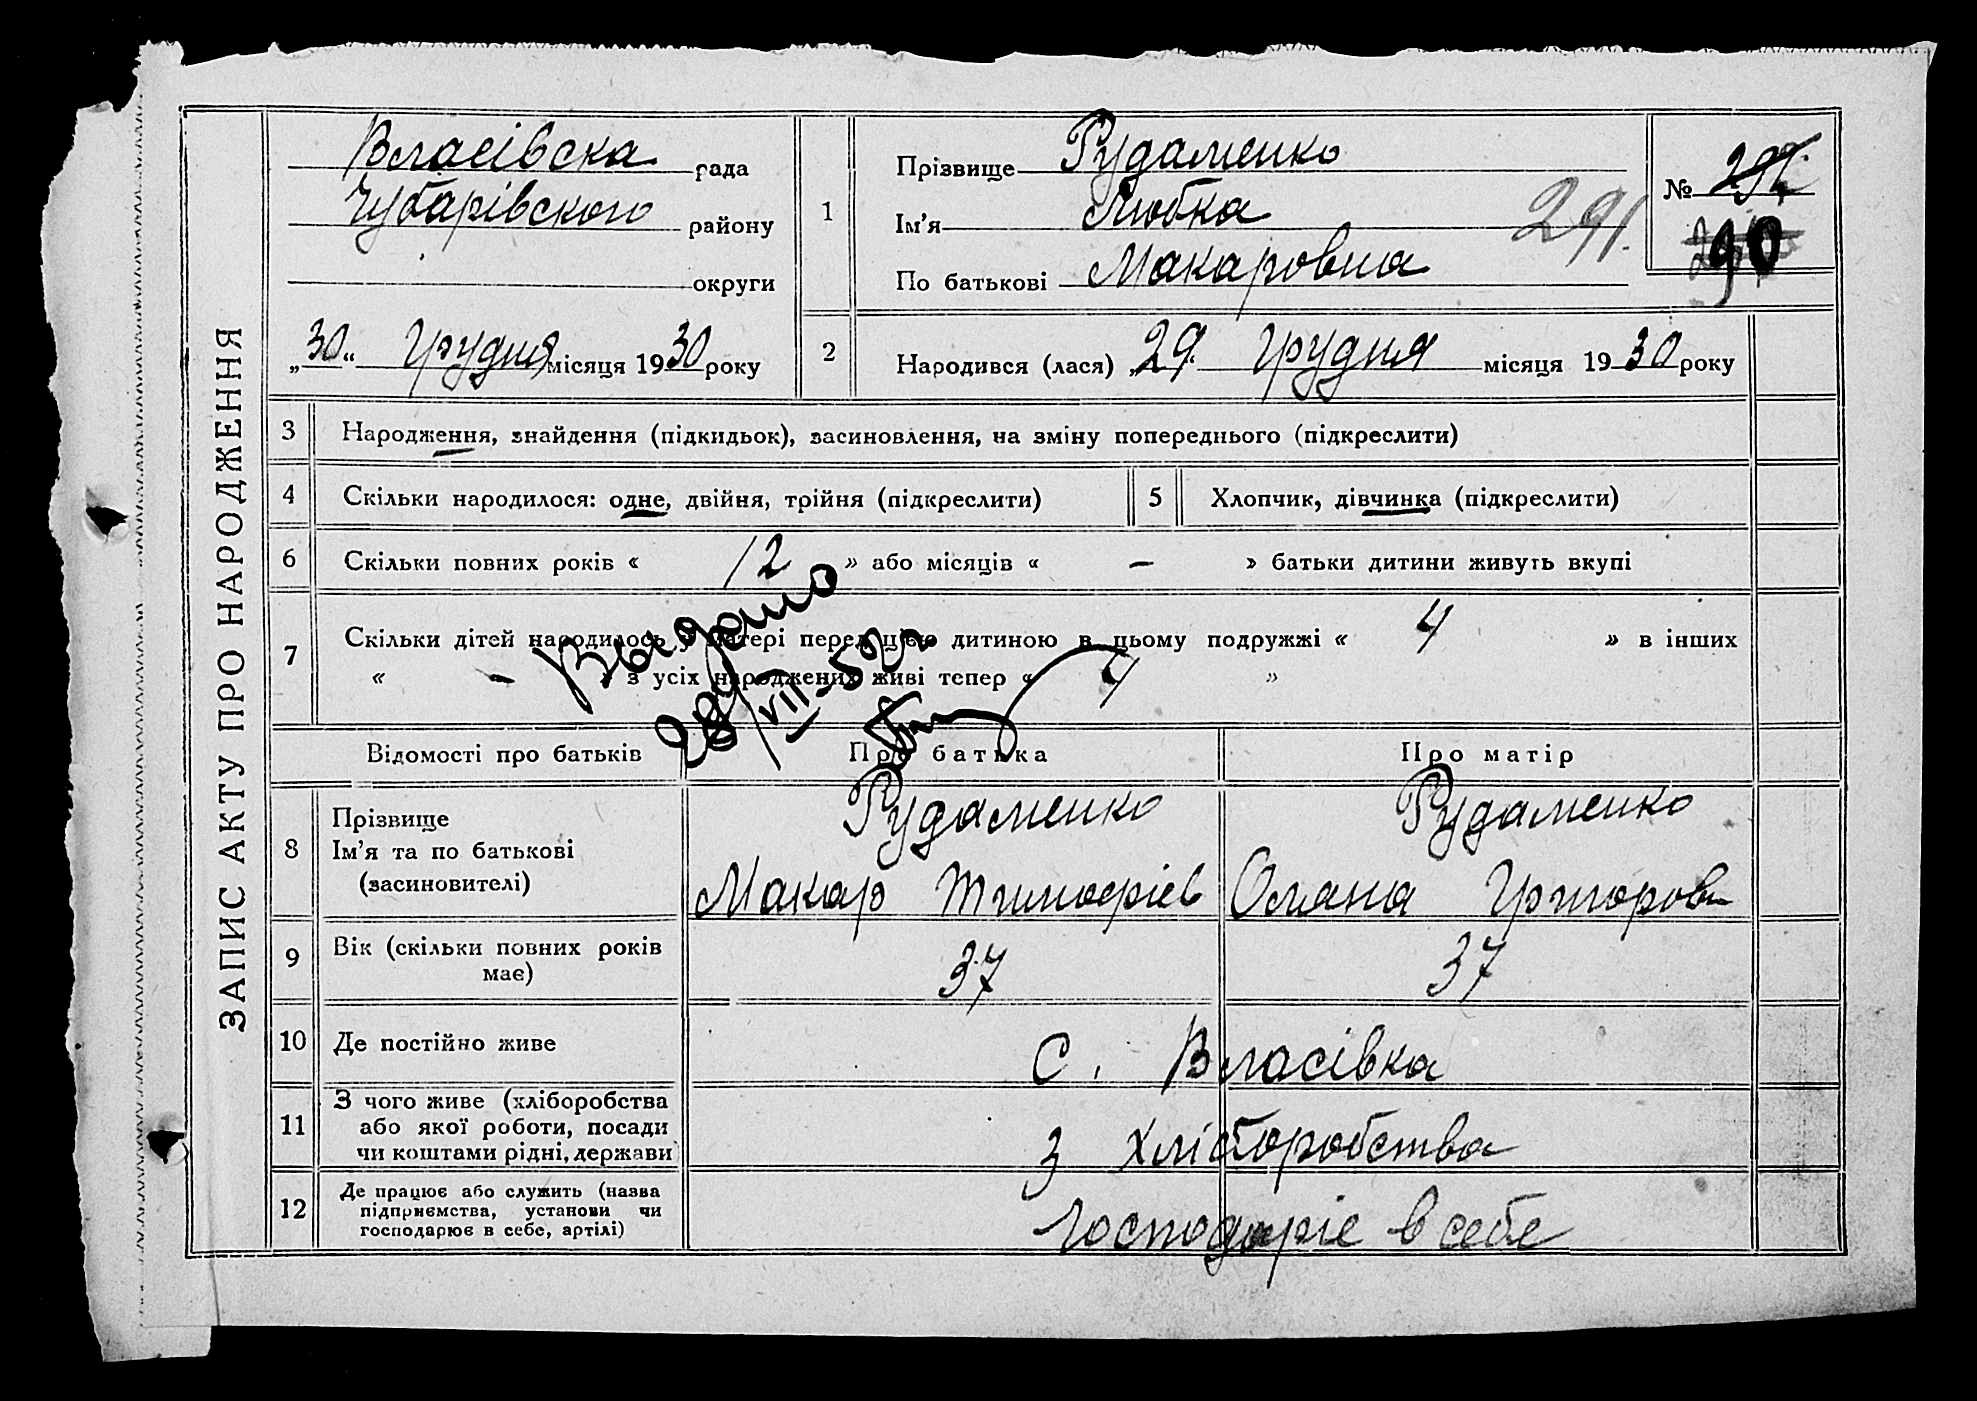 ЗАПИС АКТУ ПРО НАРОДЖЕННЯ
Власівска рада
Чубарівского району
округи
„30“ Грудня місяця 1930 року
1
Прізвище Рудаменко
Ім’я Любка
По батькові Макаровна
291.
№ 292
90
2
Народився (лася) „29“ Грудня місяця 1930 року
3 Народження, знайдення (підкидьок), засиновлення, на зміну попереднього (підкреслити)
4 Скільки народилося: одне, двійня, трійня (підкреслити)
5 Хлопчик, дівчинка (підкреслити)
6 Скільки повних років « 12 » або місяців « – » батьки дитини живуть вкупі
7 Скільки дітей народилось у матері перед цією дитиною в цьому подружжі « 4 » в інших
« – » з усіх народжених живі тепер « 4 »
Выдано
28/VII-52 г
Відомості про батьків Про батька Про матір
8 Прізвище
Ім’я та по батькові
(засиновителі)
Рудаменко
Макар Тимофіев
Рудаменко
Оляна Григоров
9 Вік (скільки повних років
має)
37 37
10 Де постійно живе
с. Власівка
11 З чого живе (хліборобства
або якої роботи, посади
чи коштами рідні, держави
З хліборобства
12 Де працює або служить (назва
підприємства, установи чи
господарює в себе, артілі)
Господаріє в себе